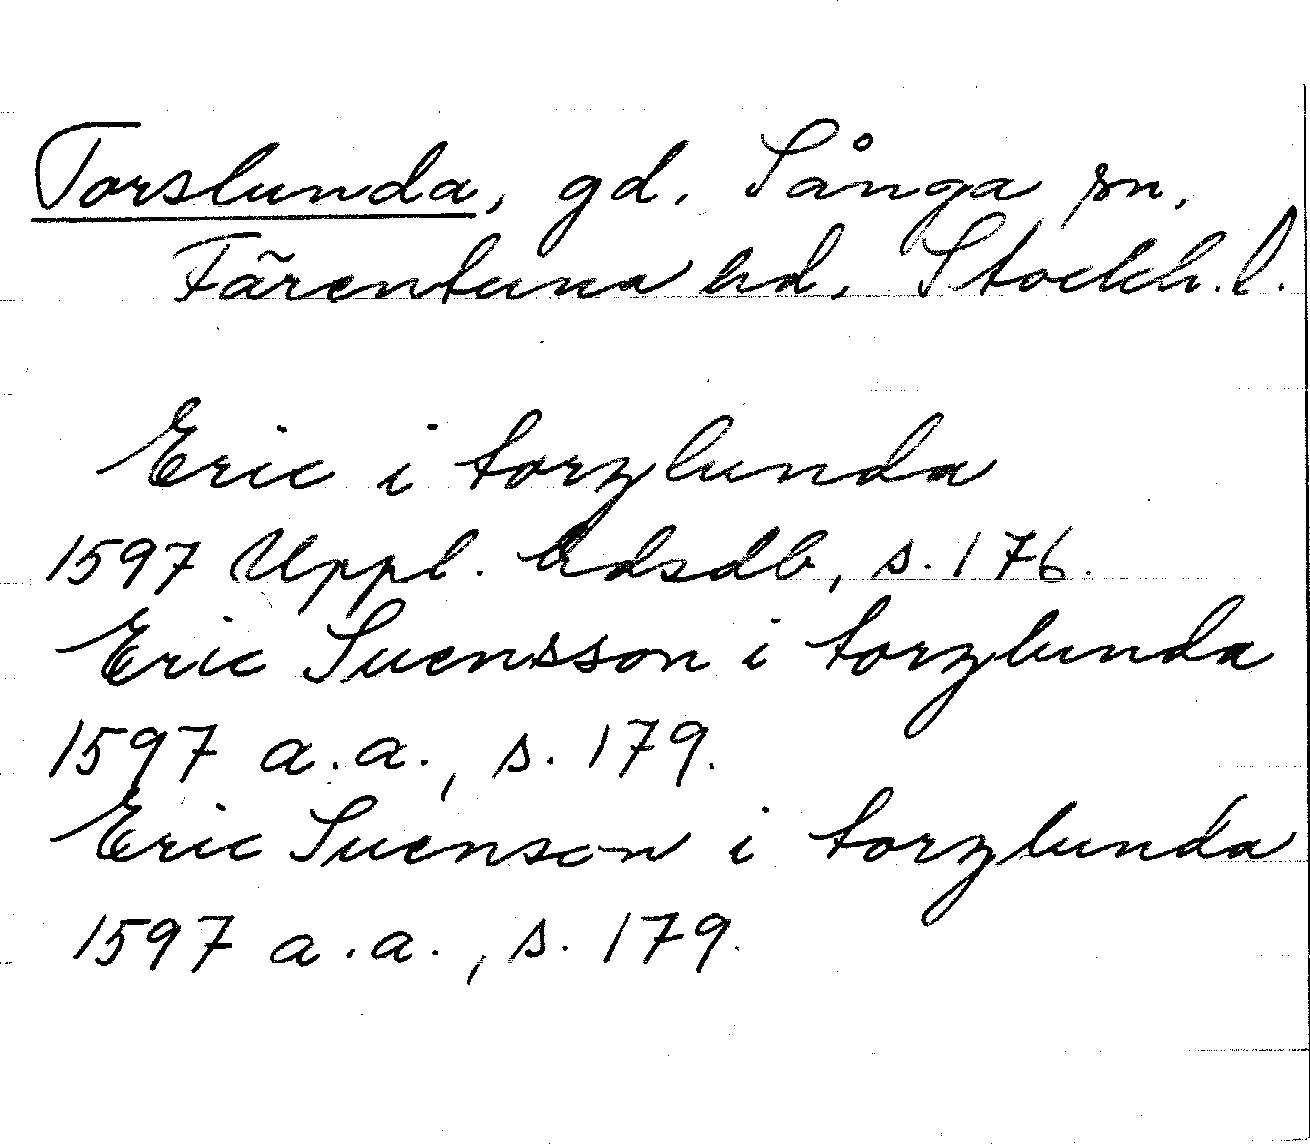 Torslunda, gd. Sånga sn,
Färentuna hd, Stockh. l.
Eric i torzlunda
1597 Uppl. hdsdb, s. 176.
Eric Suensson i torzlunda
1597 a.a., s. 179.
Eric Suenson i torzlunda
1597 a.a., s. 179.